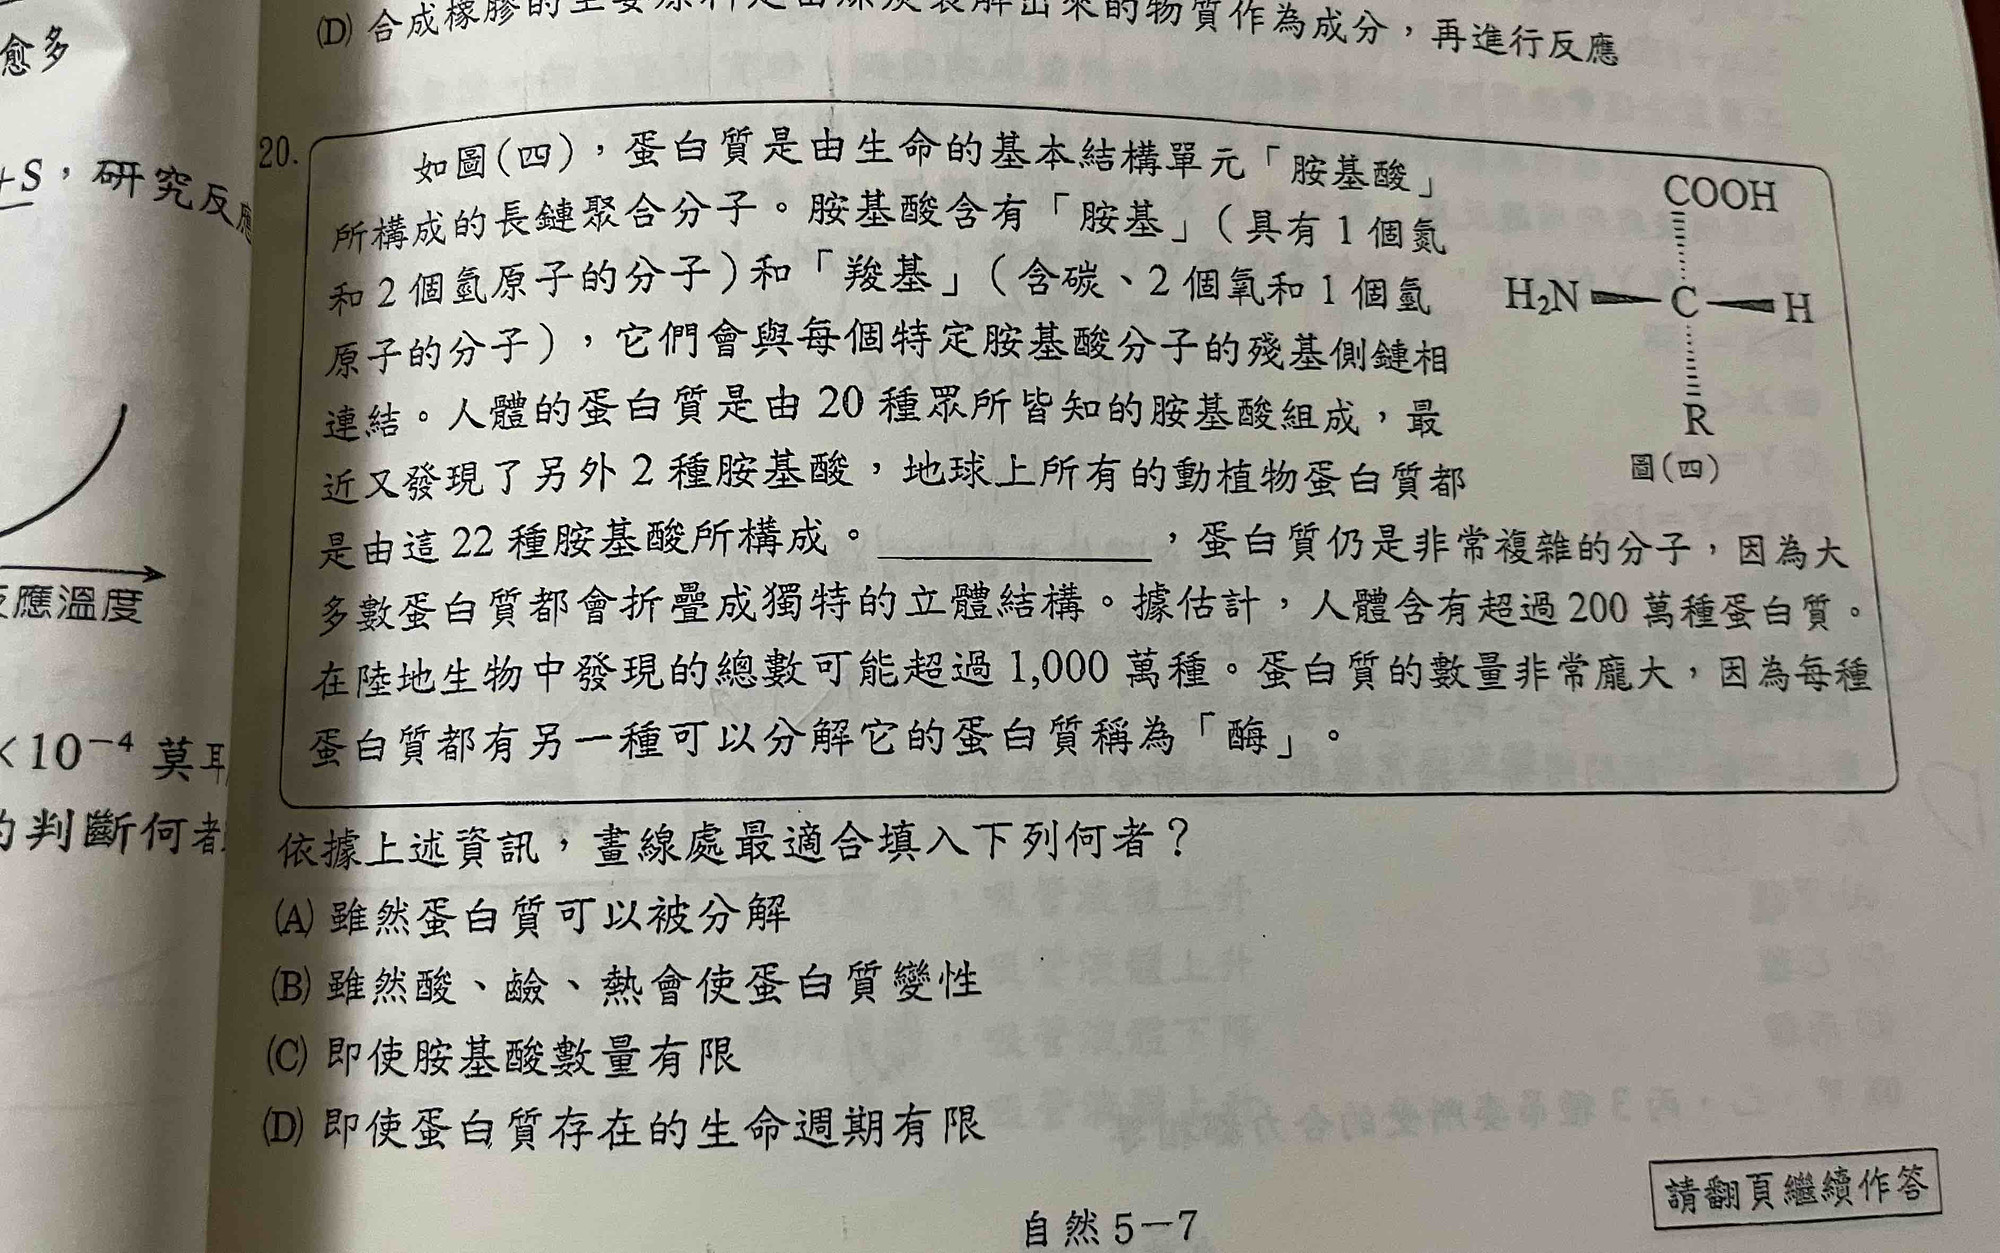 (D) 合成橡膠的主要原料是由煤炭裂解出來的物質作為成分，再進行反應
愈多
+S，研究反應
反應溫度
×10⁻⁴ 莫耳
的判斷何者
20.
如圖(四)，蛋白質是由生命的基本結構單元「胺基酸」
所構成的長鏈聚合分子。胺基酸含有「胺基」(具有1個氮
和2個氫原子的分子)和「羧基」(含碳、2個氧和1個氫
原子的分子)，它們會與每個特定胺基酸分子的殘基側鏈相
連結。人體的蛋白質是由20種眾所皆知的胺基酸組成，最
近又發現了另外2種胺基酸，地球上所有的動植物蛋白質都
是由這22種胺基酸所構成。＿＿＿＿＿＿，蛋白質仍是非常複雜的分子，因為大
多數蛋白質都會折疊成獨特的立體結構。據估計，人體含有超過200萬種蛋白質。
在陸地生物中發現的總數可能超過1,000萬種。蛋白質的數量非常龐大，因為每種
蛋白質都有另一種可以分解它的蛋白質稱為「酶」。
COOH
H₂N C H
R
圖(四)
依據上述資訊，畫線處最適合填入下列何者？
(A) 雖然蛋白質可以被分解
(B) 雖然酸、鹼、熱會使蛋白質變性
(C) 即使胺基酸數量有限
(D) 即使蛋白質存在的生命週期有限
請翻頁繼續作答
自然5－7